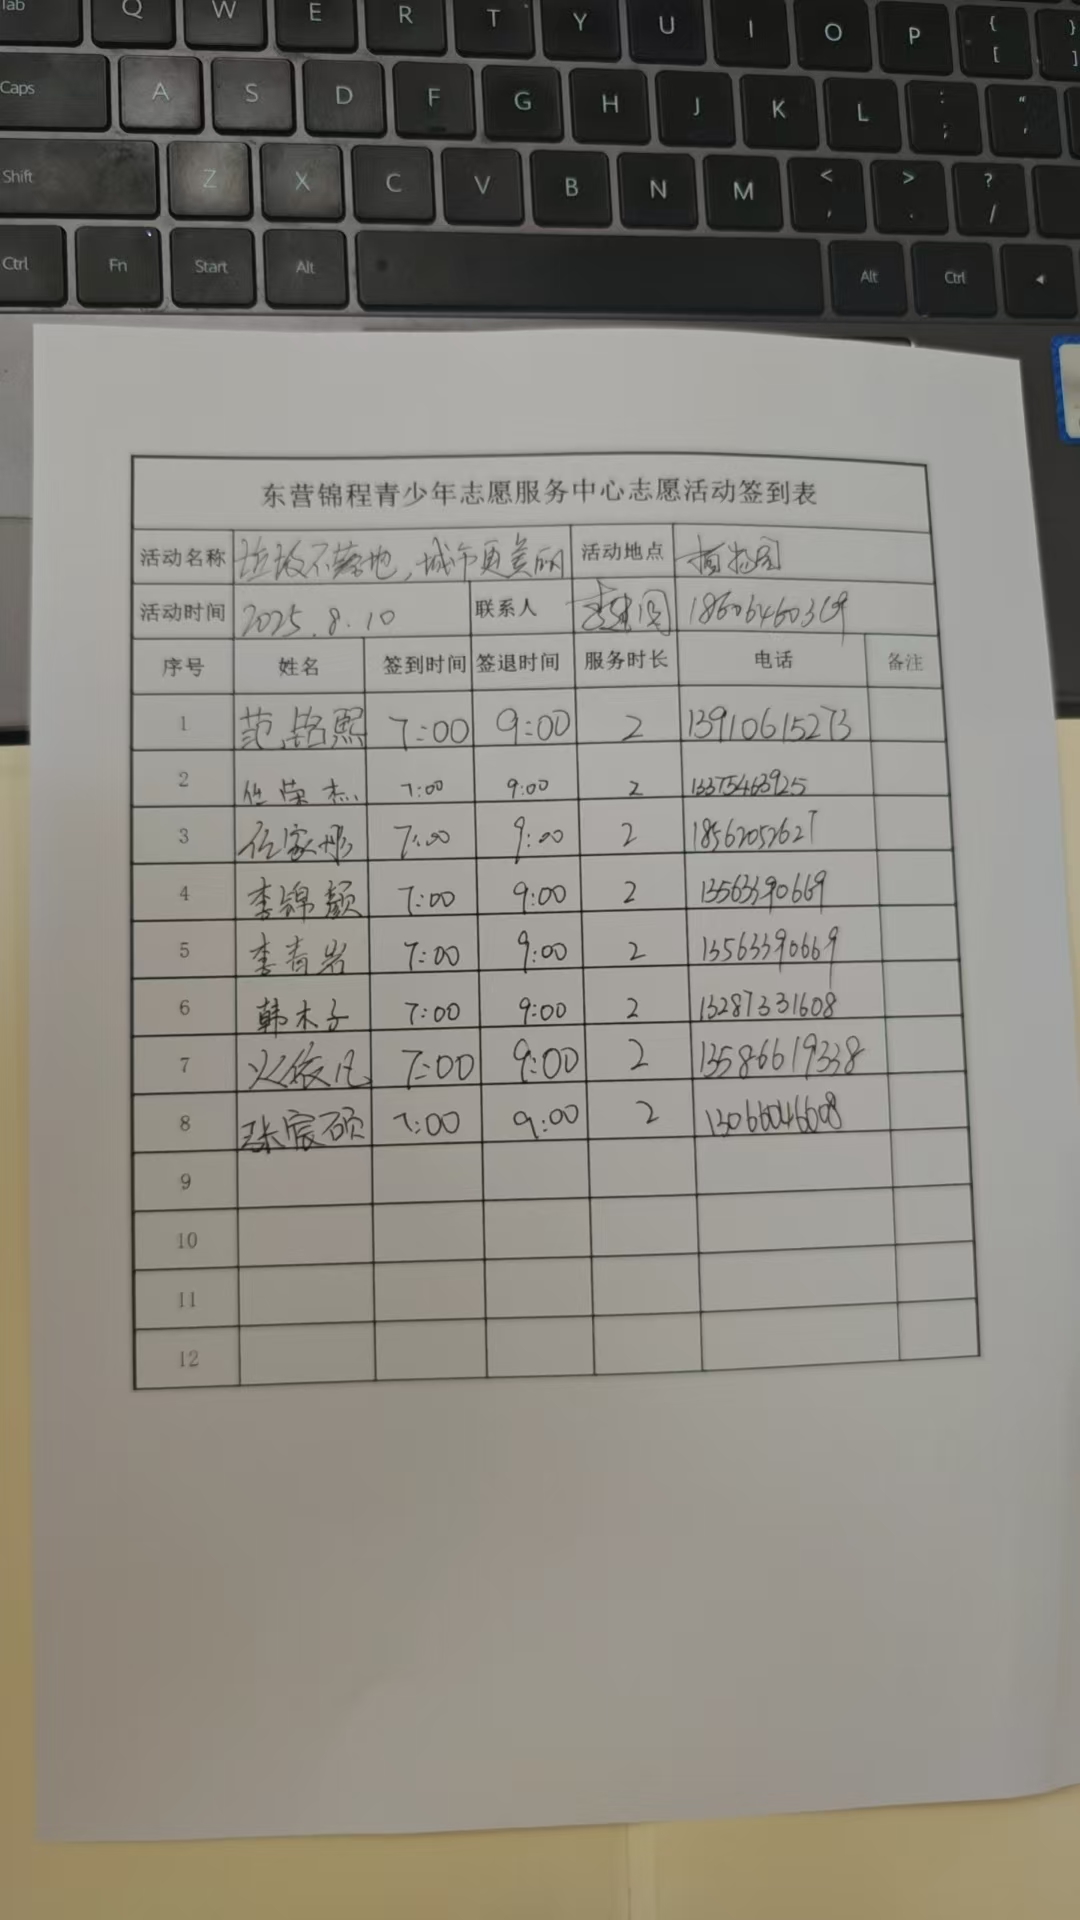 Tab Q W E R T Y U I O P { [ } ]
Caps A S D F G H J K L : ; " '
Shift Z X C V B N M < , > . ? /
Ctrl Fn Start Alt Alt Ctrl
东营锦程青少年志愿服务中心志愿活动签到表
活动名称 垃圾不落地,城市更美丽 活动地点 植物园
活动时间 2025.8.10 联系人 李建国 18606460369
序号 姓名 签到时间 签退时间 服务时长 电话 备注
1 范铭熙 7:00 9:00 2 13910615273
2 任荣杰 7:00 9:00 2 13375463925
3 任家彤 7:00 9:00 2 18562052627
4 李锦颢 7:00 9:00 2 13563390669
5 李青岩 7:00 9:00 2 13563390669
6 韩木子 7:00 9:00 2 13287331608
7 依凡 7:00 9:00 2 13586619338
8 张宸硕 7:00 9:00 2 13066046008
9
10
11
12